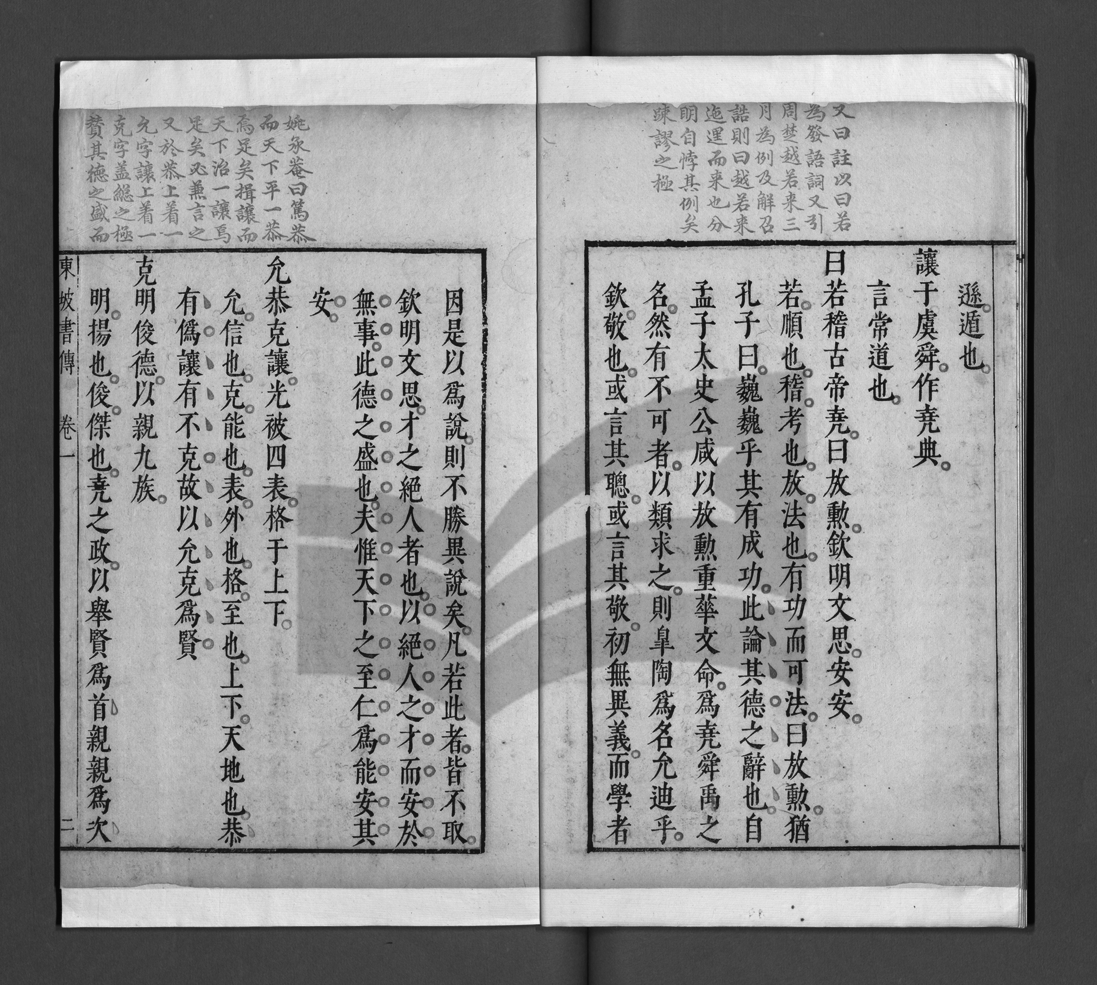 又曰註以曰若
為發語詞又引
周書越若来三
月為例及解召
誥則曰越若来
迤邐而来也分
明自悖其例矣
疎謬之極
遜遁也
讓于虞舜作堯典
言常道也
曰若稽古帝堯曰放勳欽明文思安安
若順也稽考也放法也有功而可法曰放勳猶
孔子曰巍巍乎其有成功此論其德之辭也自
孟子太史公咸以放勳重華文命爲堯舜禹之
名然有不可者以類求之則臯陶爲名允迪乎
欽敬也或言其聰或言其敬初無異義而學者
姚承菴曰篤恭
而天下平一恭
焉足矣揖讓而
天下治一讓焉
足矣必兼言之
又於恭上着一
允字讓上着一
克字蓋總之極
贊其德之盛而
因是以爲說則不勝異說矣凡若此者皆不取
欽明文思才之絕人者也以絕人之才而安於
無事此德之盛也夫惟天下之至仁爲能安其
安
允恭克讓光被四表格于上下
允信也克能也表外也格至也上下天地也恭
有僞讓有不克故以允克爲賢
克明俊德以親九族
明揚也俊傑也堯之政以舉賢爲首親親爲次
東坡書傳 卷一 二